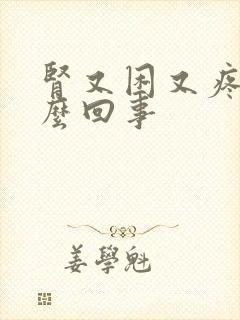 腎又困又疼
麼回事
姜學魁